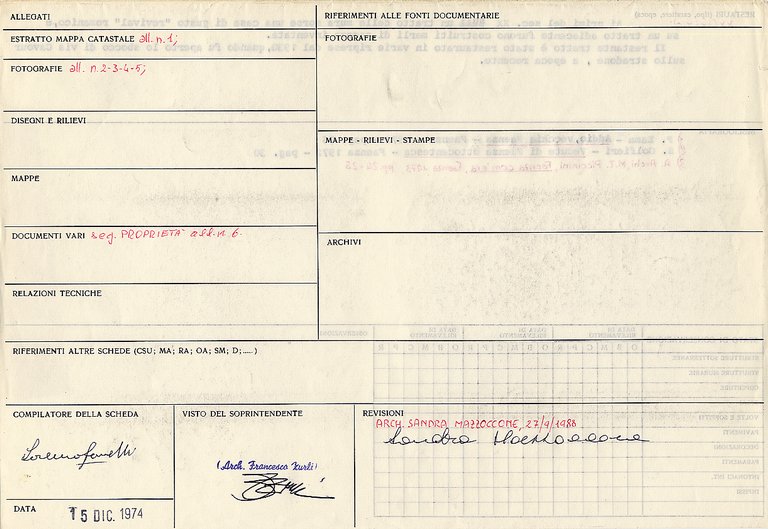 ALLEGATI
ESTRATTO MAPPA CATASTALE all. n. 1;
FOTOGRAFIE all. n. 2-3-4-5;
DISEGNI E RILIEVI
MAPPE
DOCUMENTI VARI seg. PROPRIETA' all. n. 6.
RELAZIONI TECNICHE
RIFERIMENTI ALLE FONTI DOCUMENTARIE
FOTOGRAFIE
MAPPE - RILIEVI - STAMPE
ARCHIVI
RIFERIMENTI ALTRE SCHEDE (CSU; MA; RA; OA; SM; D;.....)
COMPILATORE DELLA SCHEDA
DATA 15 DIC. 1974
VISTO DEL SOPRINTENDENTE
(Arch. Francesco Zurli)
REVISIONI
ARCH. SANDRA MAZZOCCONE, 27/9/1988
Sandra Mazzoccone